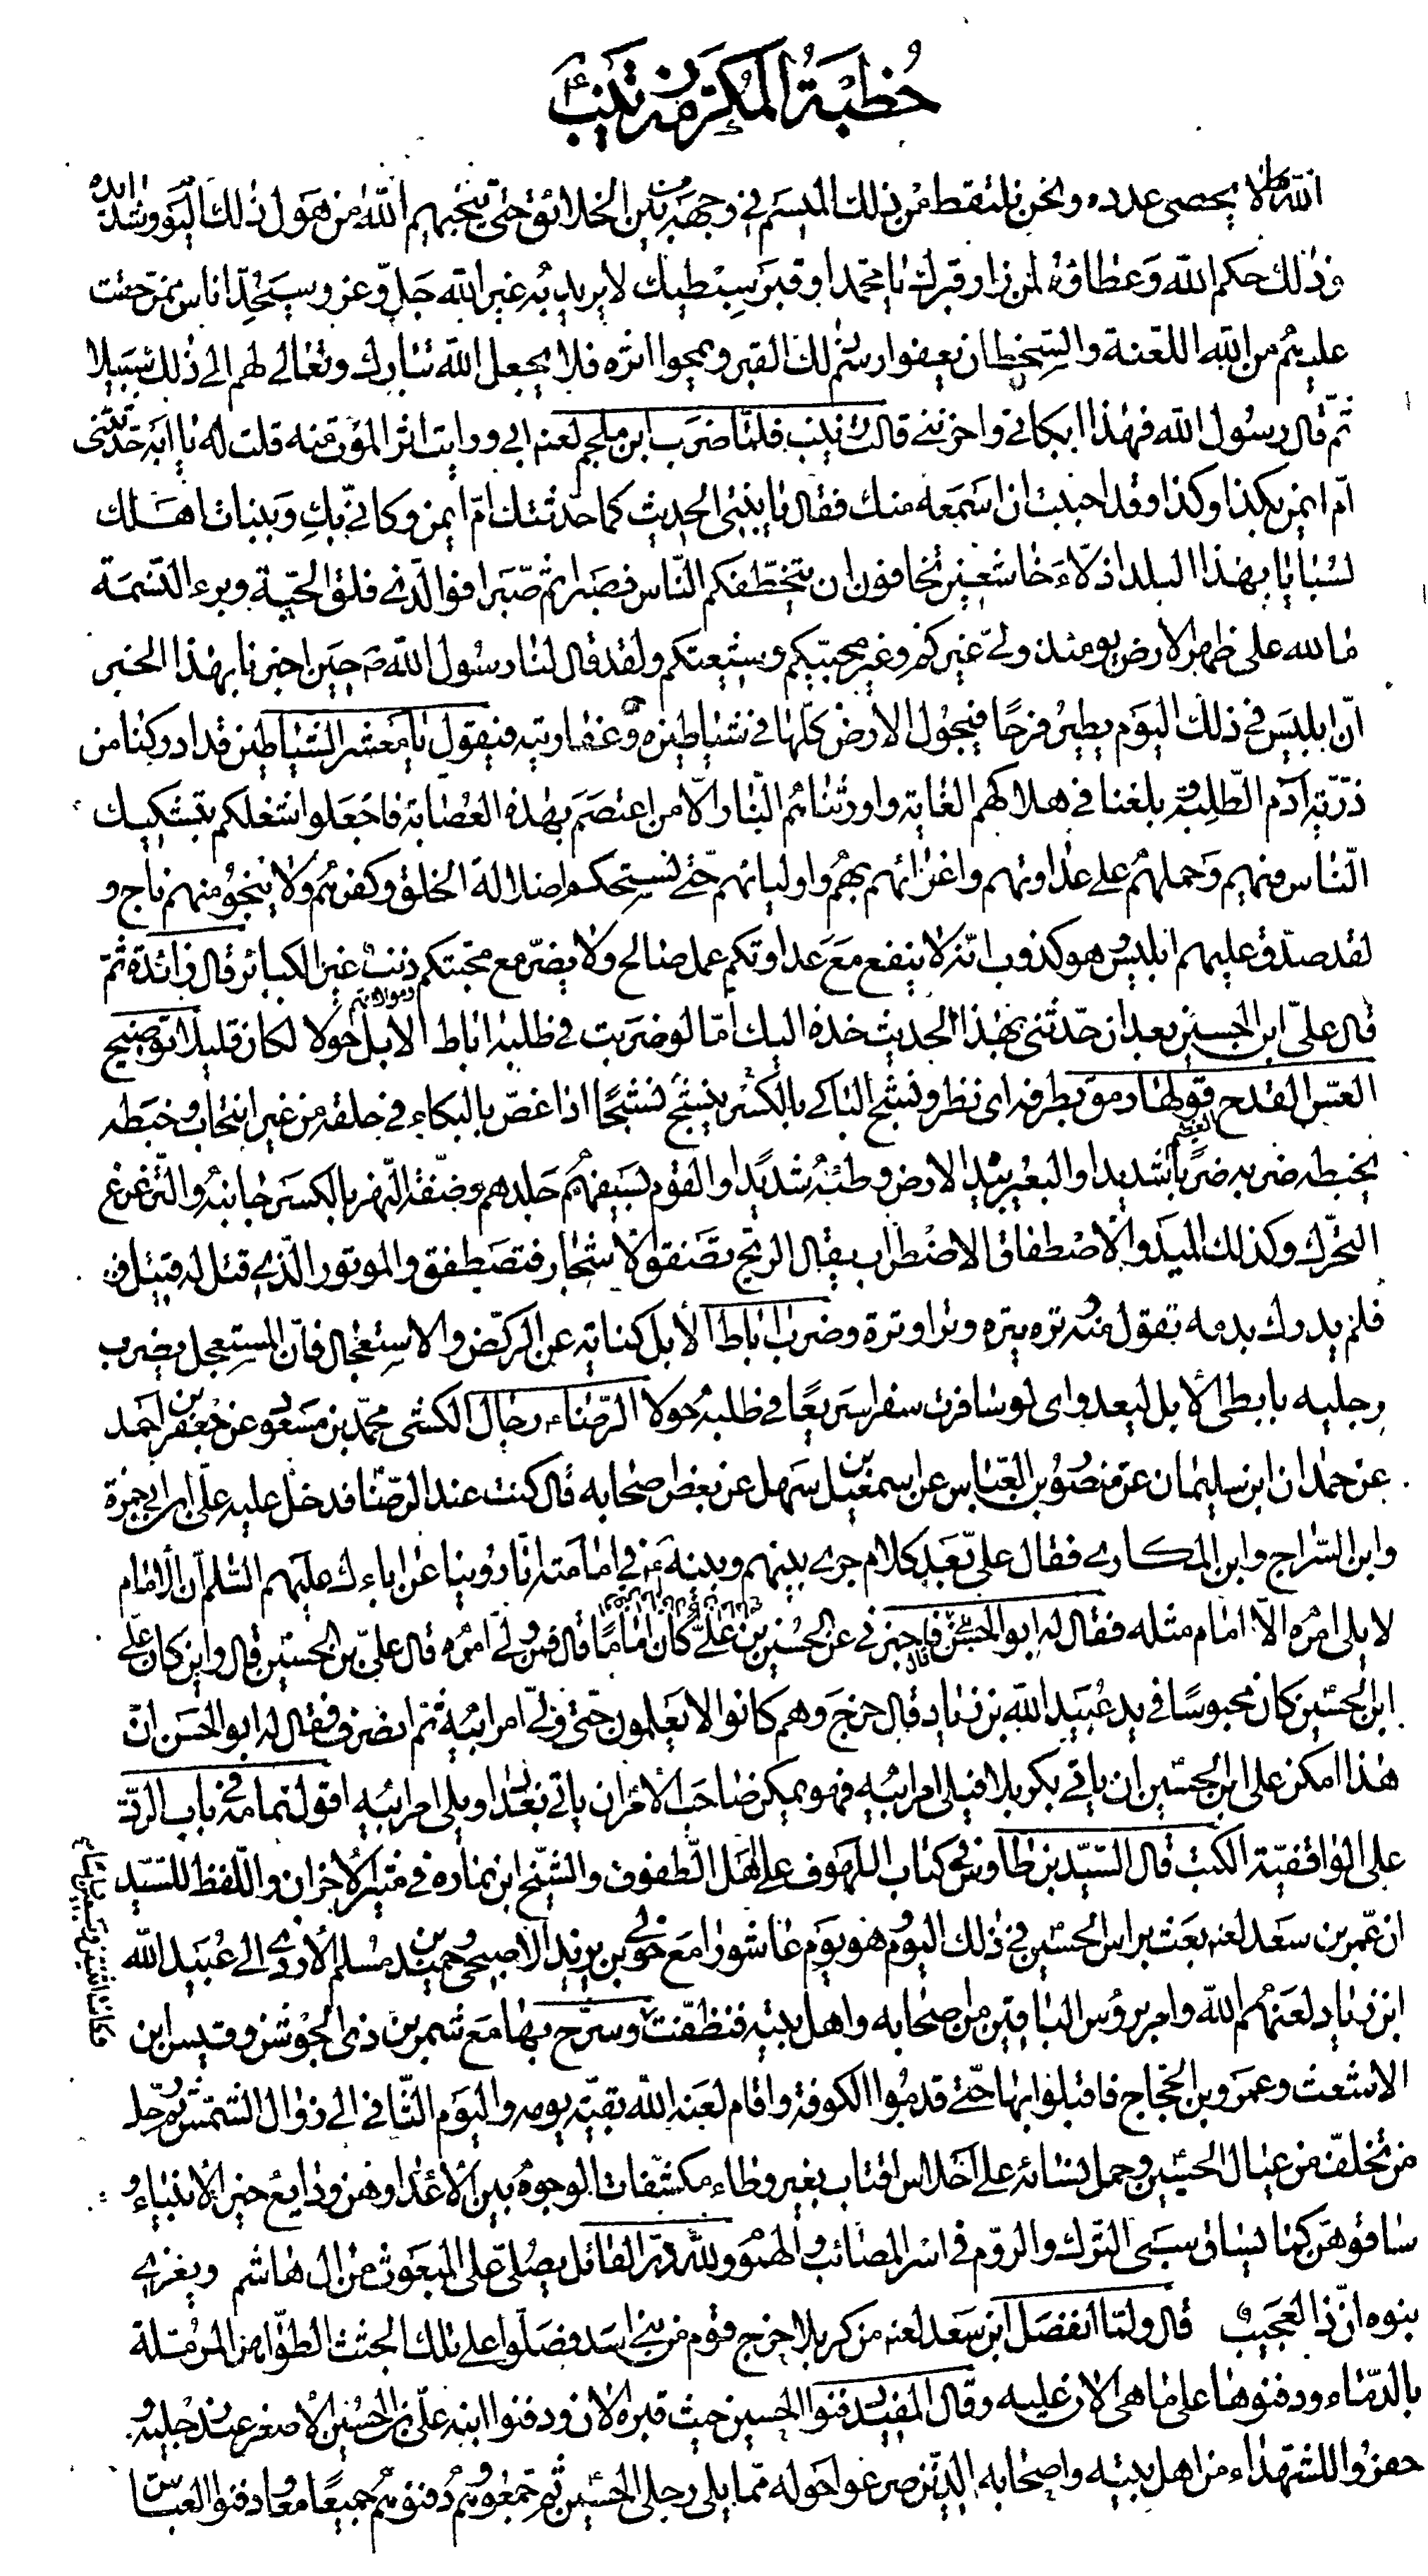 خُطبَةُ المُكرّمة زَينَب ع
الله ما لا يحصى عدده ونحن نلتقط من ذلك الميسم في وجهه من بين الخلائق حتى ينجيهم الله من هول ذلك اليوم وشدائده
وذلك حكم الله وعطاؤه لمن زار قبرك يا محمد او قبر سبطيك لا يريد به غير الله جلّ وعز وسيجدّ اناس ممن حقت
عليهم من الله اللعنة والسخط ان يعفوا رسم ذلك القبر ويمحوا اثره فلا يجعل الله تبارك وتعالى لهم الى ذلك سبيلا
ثم قال رسول الله فهذا ابكاني واحزنني قالت زينب فلما ضرب ابن ملجم لعنه ابي ورايت اثر الموت منه قلت له يا ابه حدثتنى
ام ايمن بكذا وكذا وقد احببت ان اسمعه منك فقال يا بنية الحديث كما حدثتك ام ايمن وكاني بك وببنات اهلك
لسبايا بهذا البلد اذلاء خاشعين تخافون ان يتخطفكم الناس فصبرا ثم صبرا فوالذي فلق الحبة وبرء النسمة
ما لله على ظهر الارض يومئذ ولي غيركم وغير محبيكم وشيعتكم ولقد قال لنا رسول الله ص حين اخبرنا بهذا الخبر
انّ ابليس في ذلك اليوم يطير فرحًا فيجول الارض كلها في شياطينه وعفاريته فيقول يا معشر الشياطين قد ادركنا من
ذرّية آدم الطلبة وبلغنا في هلاكهم الغاية واورثناهم النار الّا من اعتصم بهذه العصابة فاجعلوا شغلكم بتشكيك
الناس فيهم وحملهم على عداوتهم واغرائهم بهم واوليائهم حتى تستحكم ضلالة الخلق وكفرهم ولا ينجو منهم ناج و
لقد صدّق عليهم ابليس وهو كذوب انه لا ينفع مع عداوتكم عمل صالح ولا يضرّ مع محبتكم وموالاتكم ذنب غير الكبائر قال زائدة ثمّ
قال عليّ ابن الحسين بعد ان حدّثني بهذا الحديث خذه اليك امّا لو ضربت في طلبه اباط الابل حولا لكان قليلا توضيح
العسّ القدح العظيم قولها رمق بطرفه اى نظر ونشج الباكي بالكسر ينشج نشجًا اذا غصّ بالبكاء في حلقه من غير انتحاب وخبطه
يخبطه ضربه ضربًا شديدا والبعير بيده الارض وطئه شديدًا والقوم بسيفهم جلدهم وضفّة النهر بالكسر جانبه والتزعزع
التحرك وكذلك الميد والاصطفاق الاضطراب يقال الريح تصفق الاشجار فتصطفق والموتور الّذي قتل له قتيل
فلم يدرك بدمه تقول منه وتره يتره وترا وترة وضرب اباط الأبل كناية عن الركض والاستعجال فانّ المستعجل يضرب
رجليه بابطى الابل ليعدو اى لو سافرت سفرا سريعًا في طلبه حولا الرضاء رجال الكشى محمّد بن مسعود عن جعفر بن احمد
عن حمدان ابن سليمان عن منصور بن العباس عن اسمعيل بن سهل عن بعض اصحابه قال كنت عند الرضا فدخل عليه علي ابن ابي حمزة
وابن السّراج وابن المكاري فقال علي بعد كلام جرى بينهم وبينه ع في امامته انا روينا عن اباءك عليهم السّلم ان الامام
لا يلى امره الّا امام مثله فقال له ابو الحسن فاخبرني عن الحسين بن عليّ كان امامًا قال فمن ولي امره قال عليّ بن الحسين قال واين كان علي
ابن الحسين كان محبوسًا في يد عبيد الله بن زياد قال خرج وهم كانوا لا يعلمون حتى ولي امر ابيه ثم انصرف فقال له ابو الحسن انّ
هذا امكن علي ابن الحسين ان ياتي بكربلا فيلى امر ابيه فهو يمكن صاحب الأمر ان ياتي بغداد ويلى امر ابيه اقول تمامه في باب الردّ
على الواقفيّة الكتب قال السيّد بن طاوس في كتاب اللهوف على اهل الطفوف والشيخ ابن نما ره في مثير الأحزان واللفظ للسيّد
ان عمر بن سعد لعنه بعث براس الحسين في ذلك اليوم وهو يوم عاشورا مع خولي بن يزيد الاصبحي وحميد بن مسلم الأزدي الى عبيد الله
ابن زياد لعنهم الله وامر برؤس الباقين من اصحابه واهل بيته فنظفت وسرّح بها مع شمر بن ذى الجوشن وقيس ابن
الاشعث وعمرو بن الحجاج فاقبلوا بها حتى قدموا الكوفة واقام لعنه الله بقيّة يومه واليوم الثّاني الى زوال الشمس ثم رحل
من تخلّف من عيال الحسين وحمل نسائه على احلاس اقتاب بغير وطاء مكشّفات الوجوه بين الأعداء وهن ودايع خير الأنبياء و
ساقوهنّ كما يساق سبى الترك والروم في اسر المصائب والهموم ولله درّ القائل يصلّى على المبعوث من ال هاشم ويغزى
بنوه انّ ذا لعجيب قال ولمّا انفصل ابن سعد لعنه من كربلا خرج قوم من بني اسد فصلّوا على تلك الجثث الطواهر المرمّلة
بالدّماء ودفنوها على ما هى الان عليه وقال المفيد دفنوا الحسين حيث قبره الان ودفنوا ابنه علي بن الحسين الأصغر عند رجليه و
حفروا للشهداء من اهل بيته واصحابه الذين صرعوا حوله ممّا يلى رجلى الحسين ثم جمعوهم ودفنوهم جميعًا معًا ودفنوا العبّاس